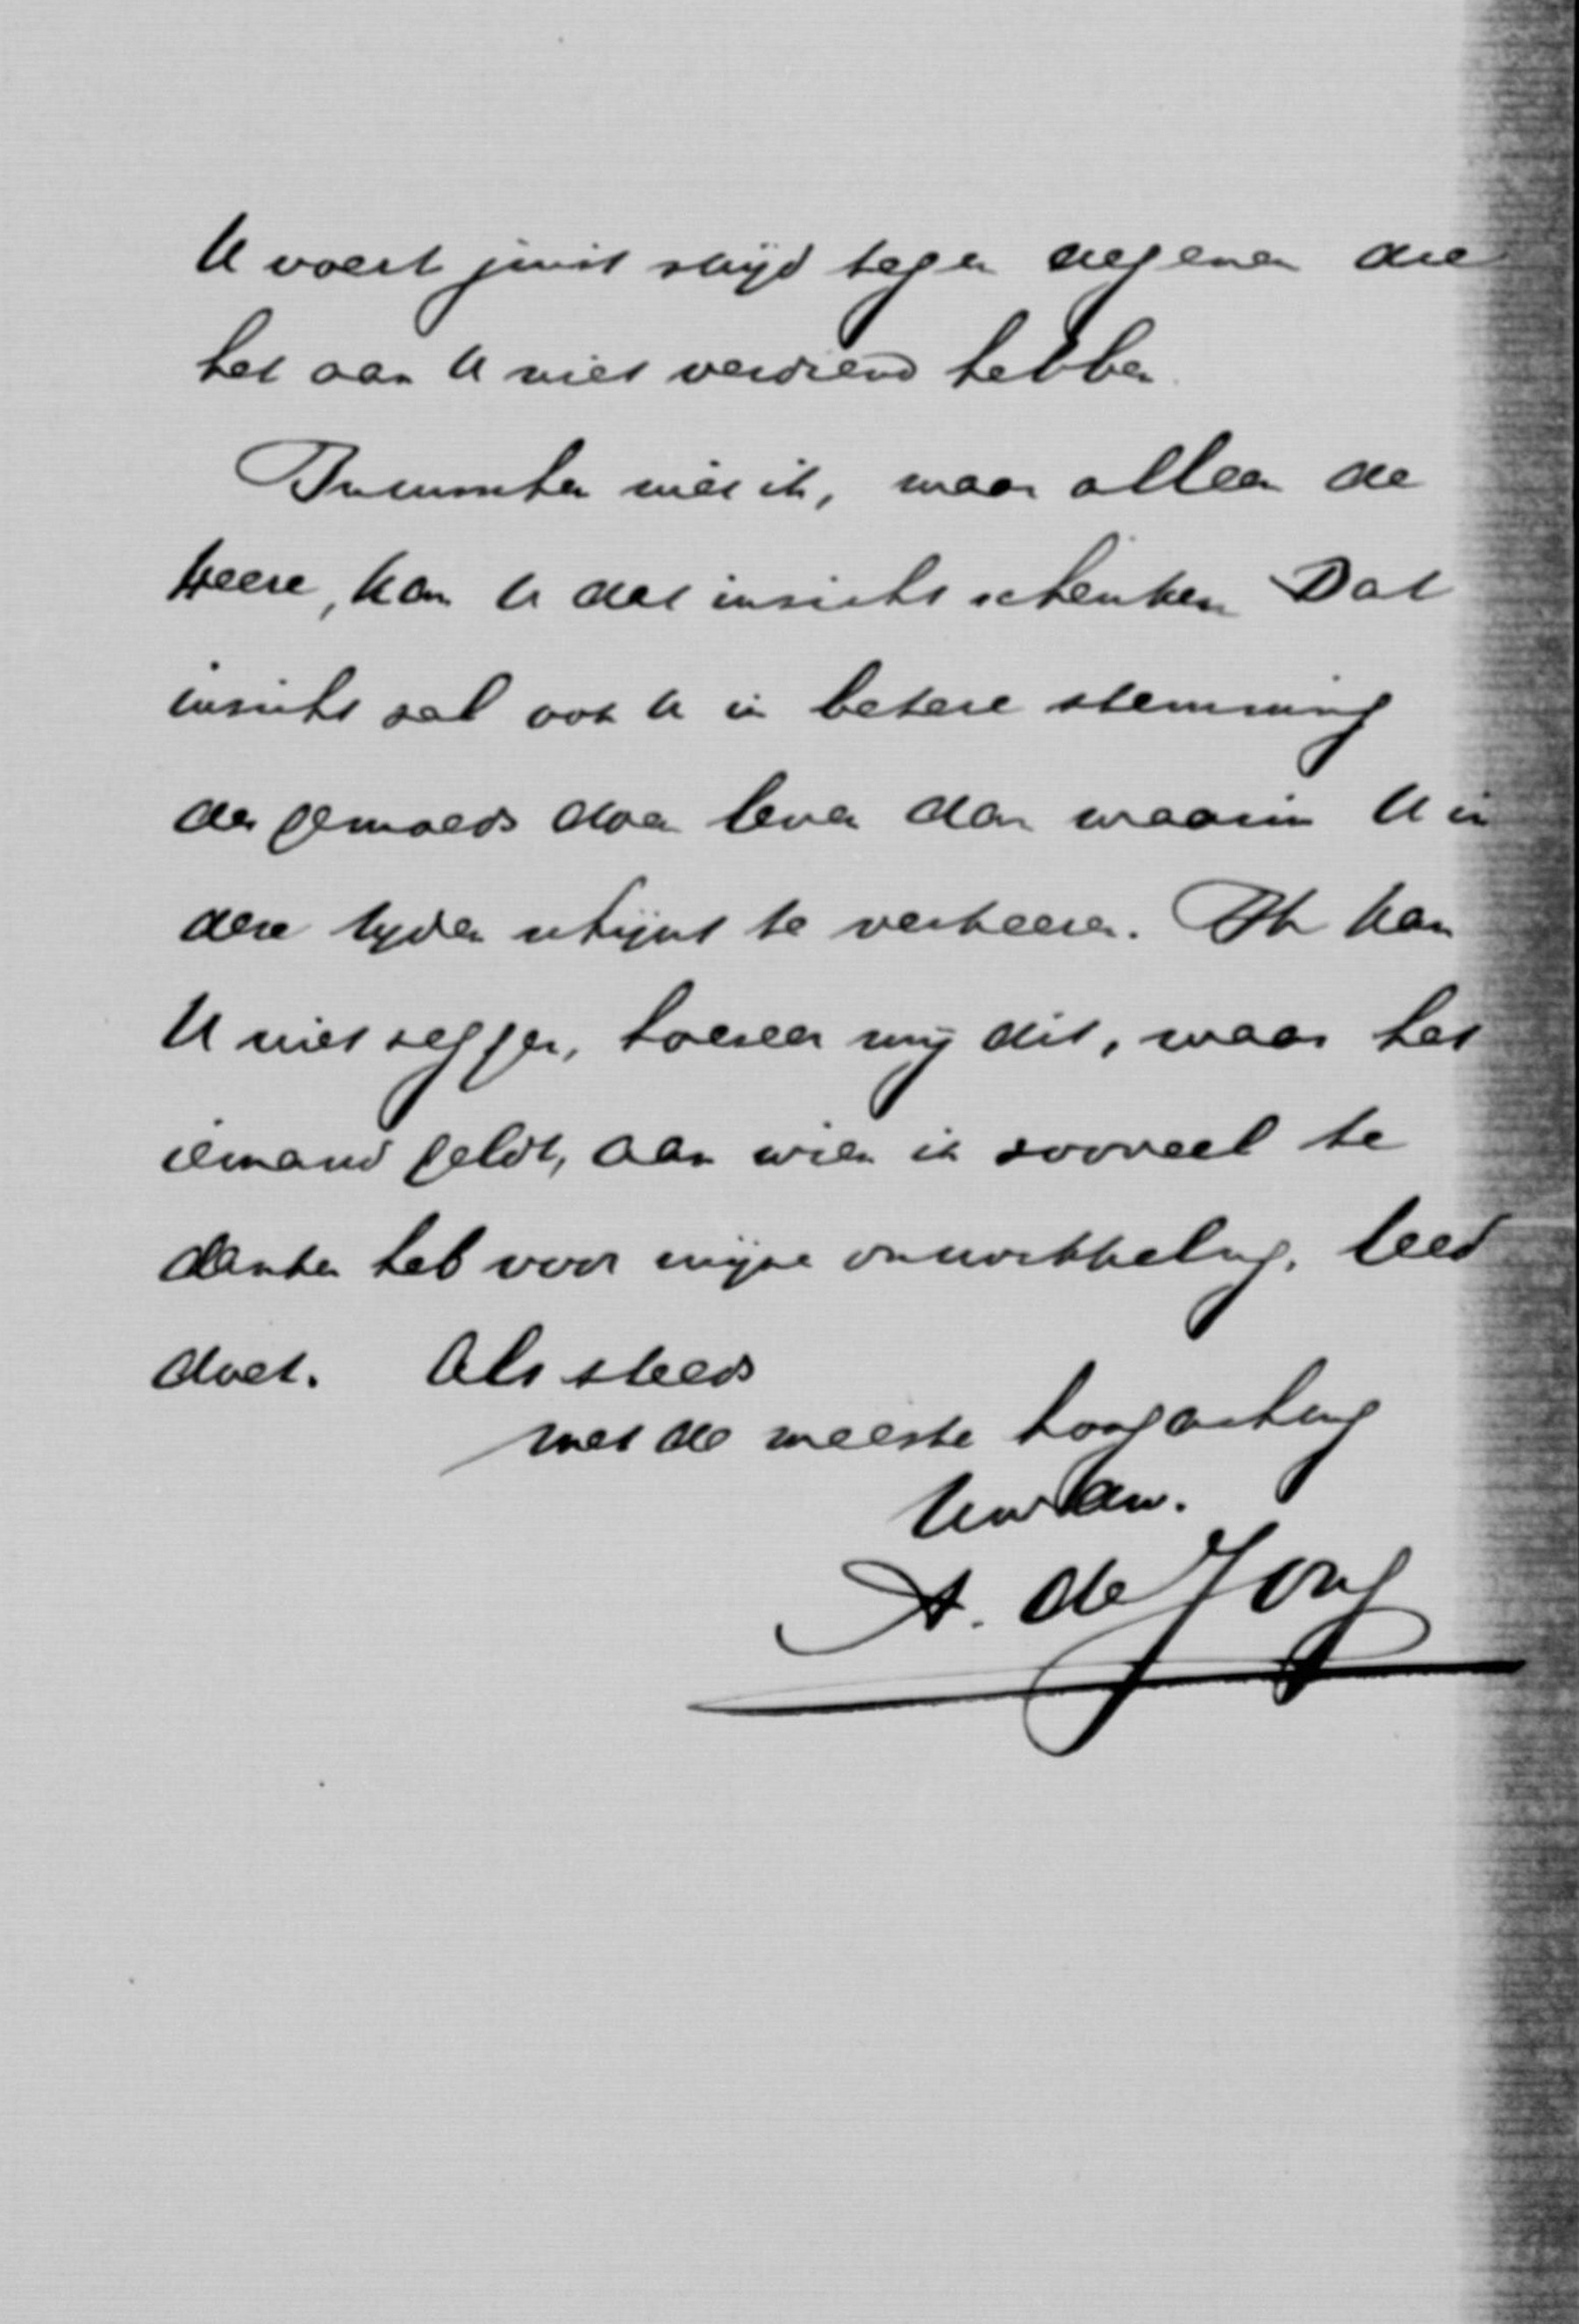 U voert juist strijd tegen degenen die
het aan U niet verdiend hebben.
Intusschen niet ik, maar alleen de
Heere, kan U dat inzicht schenken. Dat
inzicht zal ook U in betere stemming
des gemoeds doen leven dan waarin U in
deze tijden schijnt te verkeeren. Ik kan
U niet zeggen, hoezeer mij dit, waar het
iemand geldt, aan wien ik zooveel te
danken heb voor mijne ontwikkeling, leed
doet. Als steeds
met de meeste hoogachting
Uw dw.
A. de Jong